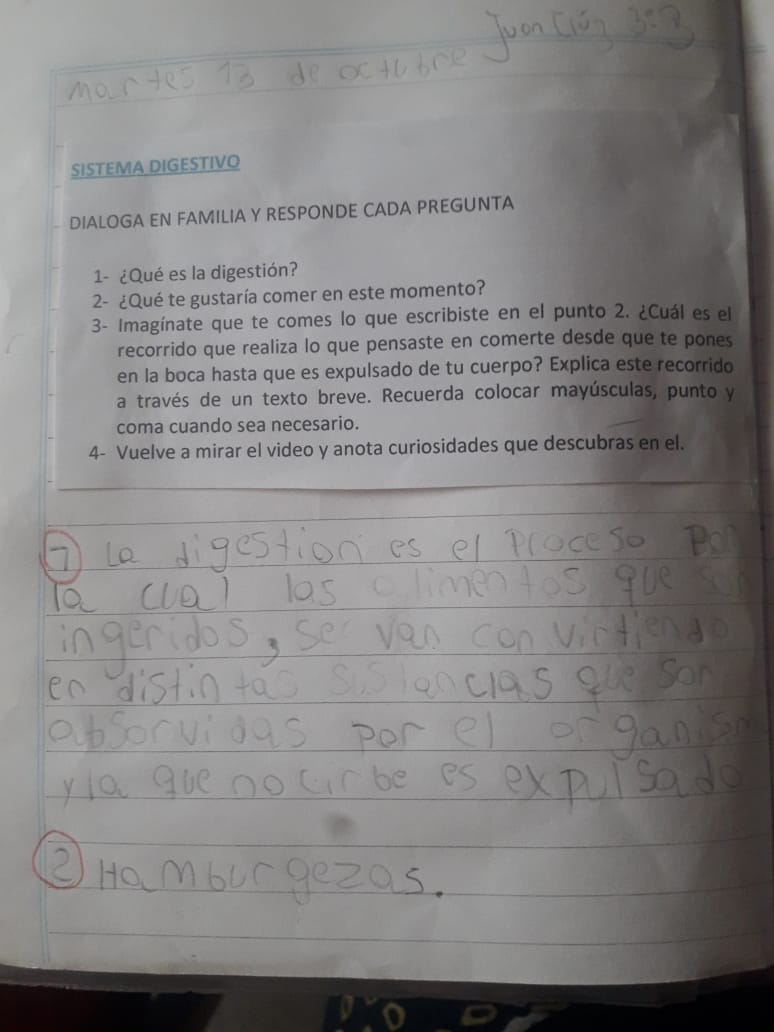 Juan Cruz 3º B
martes 13 de octubre
SISTEMA DIGESTIVO
DIALOGA EN FAMILIA Y RESPONDE CADA PREGUNTA
1- ¿Qué es la digestión?
2- ¿Qué te gustaría comer en este momento?
3- Imagínate que te comes lo que escribiste en el punto 2. ¿Cuál es el
recorrido que realiza lo que pensaste en comerte desde que te pones
en la boca hasta que es expulsado de tu cuerpo? Explica este recorrido
a través de un texto breve. Recuerda colocar mayúsculas, punto y
coma cuando sea necesario.
4- Vuelve a mirar el video y anota curiosidades que descubras en el.
1 La digestion es el proceso por
la cual las alimentos que son
ingeridos, se van convirtiendo
en distintas sustancias que son
absorvidas por el organism
y la que no cirbe es expulsado
2 Hamburgezas.